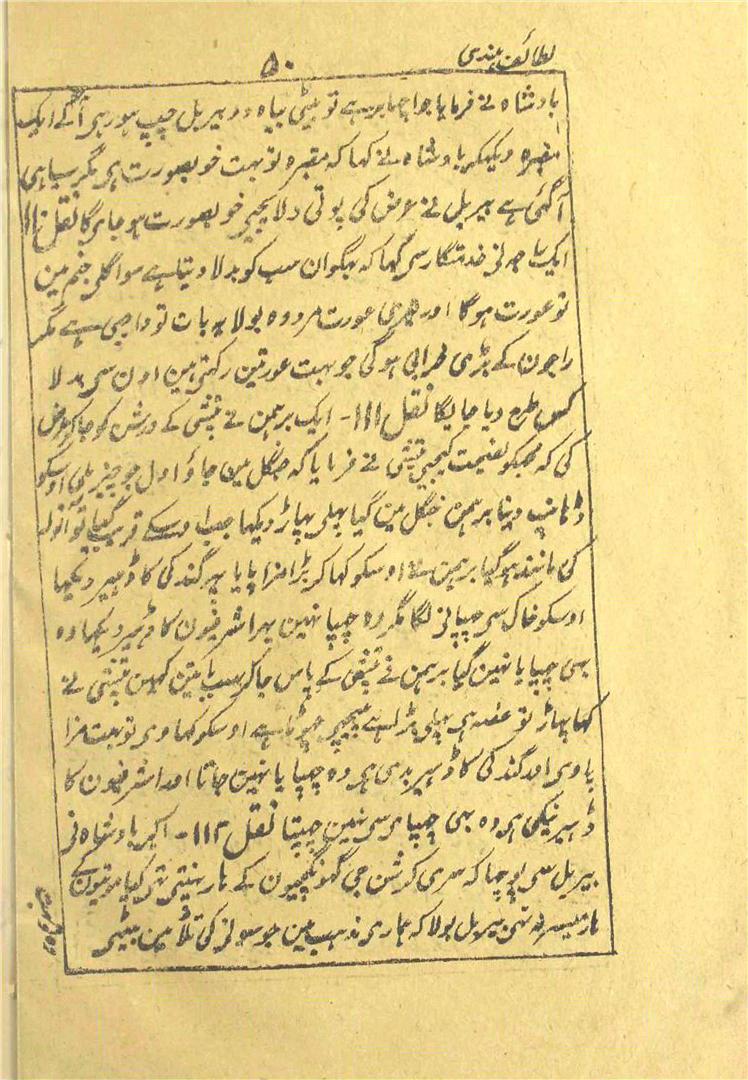 لطائف ہندی
۵۰
بادشاہ نے فرمایا جو اچھا برہے تو بیٹی بیاہ دو بیربل چپ ہو رہی آگے ایک
مقبرہ دیکہکر بادشاہ نے کہا کہ مقبرہ تو بہت خوبصورت ہی مگر سیاہی
آگئی ہے بیربل نے عرض کی پوتی دلایجیی خوبصورت ہو جائیگا نقل ۱۱۰
ایک نے خدمتگار سی کہا کہ بہگوان سب کو بدلا دیتا ہے سو اگلی جنم مین
تو عورت ہوگا اور میری عورت مرد وہ بولا یہ بات تو واجبی ہے مگر
راجون کے بڑی خرابی ہوگی جو بہت عورتین رکہتی ہین اون سی بدلا
کس طرح دیا جائیگا نقل ۱۱۱- ایک برہمن نے تپشی کے درشن کو جا کر عرض
کی کہ مجہکو نصیحت کیجیی تپشی نے فرمایا کہ جنگل مین جاؤ اول جو چیز ملی اوسکو
ڈہانپ دینا برہمن جنگل مین گیا پہلی پہاڑ دیکہا جب اوسکے قریب گیا تو آنولہ
کی مانند ہوگیا برہمن نے اوسکو کہا کر بڑا مزا پایا پہر گندکی کا ڈہیر دیکہا
اوسکو خاک سی چہپانی لگا مگر وہ چہپا نہین پہر اشرفیون کا ڈہیر دیکہا وہ
بہی چہپایا نہین گیا برہمن نے تپشی کے پاس جا کر سب باتین کہین تپشی نے
کہا پہاڑ تو غصہ ہی پہلی بڑا ہے پیچہی چہوٹا ہے اوسکو کہاوی تو بہت مزا
پاوی اور گندکی کا ڈہیر بدی ہی وہ چہپایا نہین جاتا اور اشرفیون کا
ڈہیر نیکی ہی وہ بہی چہپا سی نہین چہپتا نقل ۱۱۲- اکبر بادشاہ نی
بیربل سی پوچہا کہ سری کرشن جی گہونگچیون کے ہار پہنتی تہی کیا موتیون کے
ہار میسر نہ تہی بیربل بولا کہ ہماری مذہب مین جو سونی کی تلا مین بیٹہی